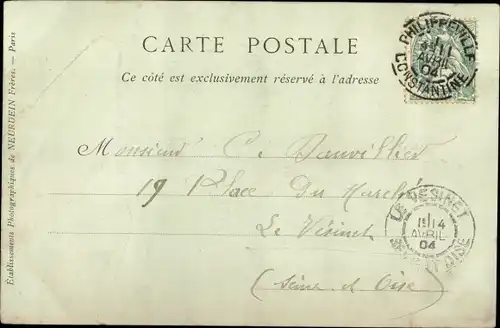 CARTE POSTALE
Ce côté est exclusivement réservé à l'adresse
PHILIPPEVILLE
11
AVRIL
04
CONSTANTINE
Monsieur C. Dauvillier
19 Place Du Marché
Le Vésinet
(Seine et Oise)
LE VESINET
14
AVRIL
04
SEINE ET OISE
Établissements Photographiques de NEURDEIN Frères. — Paris